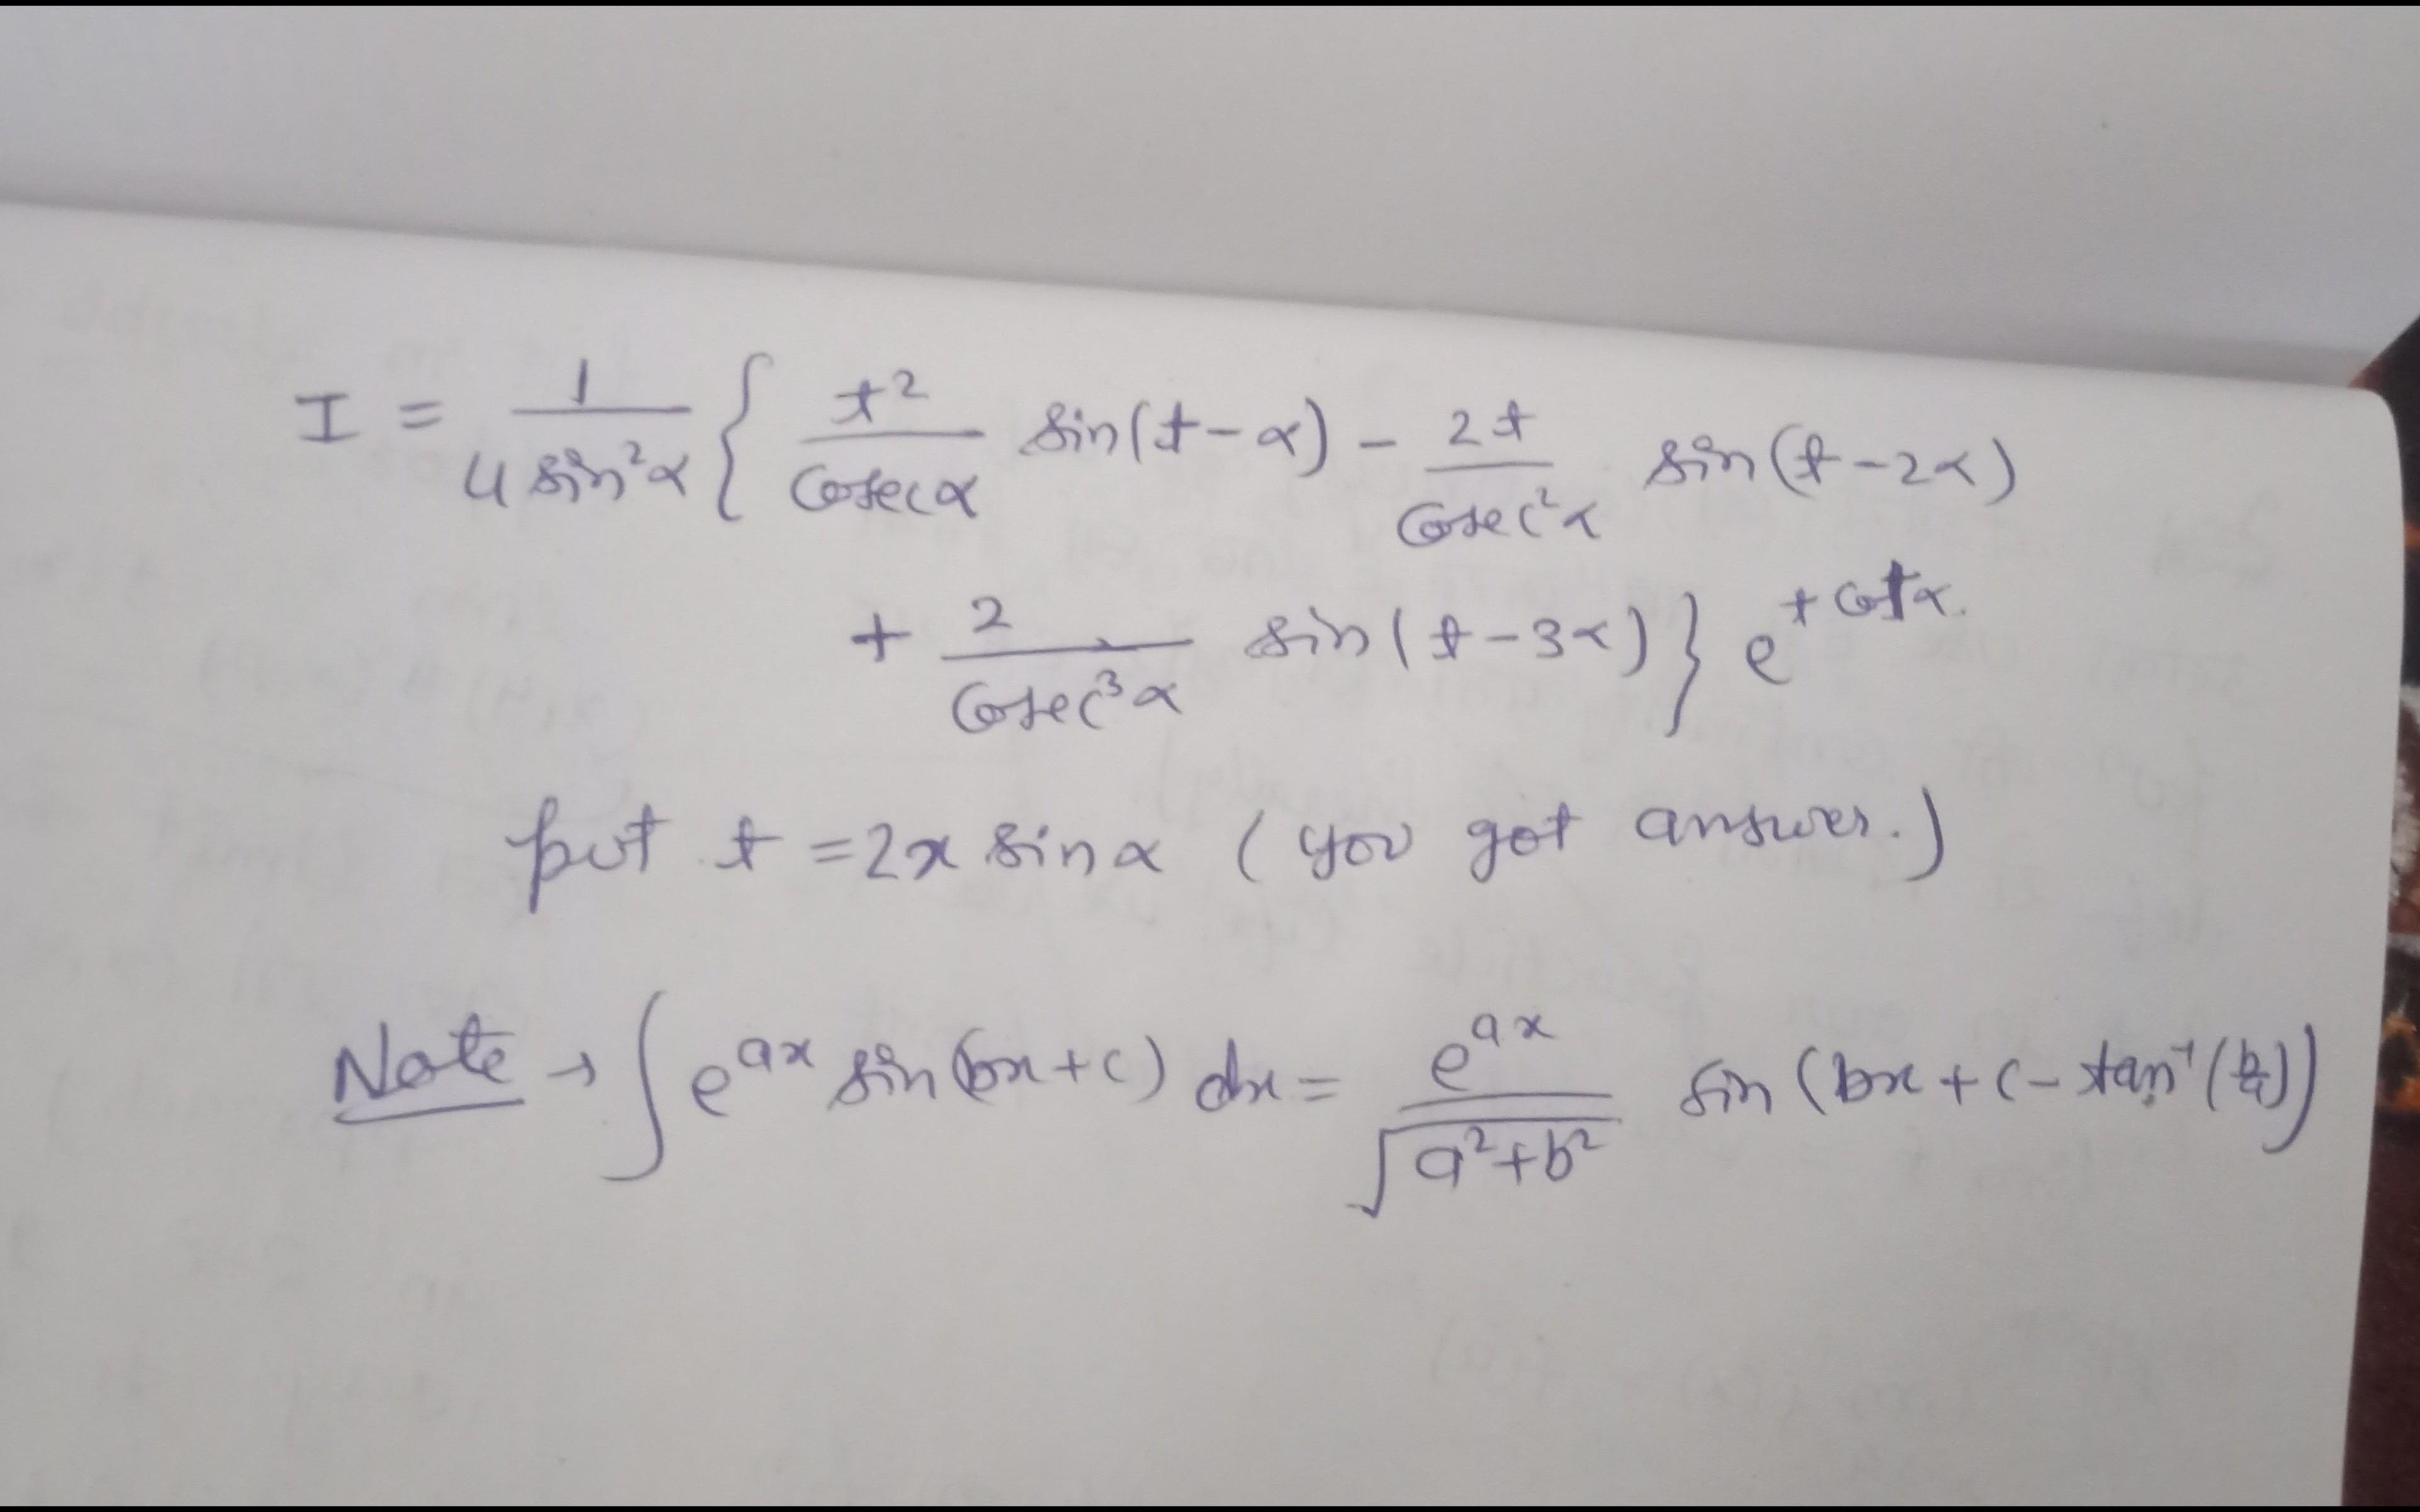 I = 1/(4 sin²α) { t²/(Cosec α) sin(t-α) - 2t/(Cosec²α) sin(t-2α)
+ 2/(Cosec³α) sin(t-3α) } e^(t cot α).
put t = 2x sin α (you got answer.)
Note → ∫ e^(ax) sin(bx+c) dx = e^(ax)/√(a²+b²) sin(bx+c-tan⁻¹(b/a))